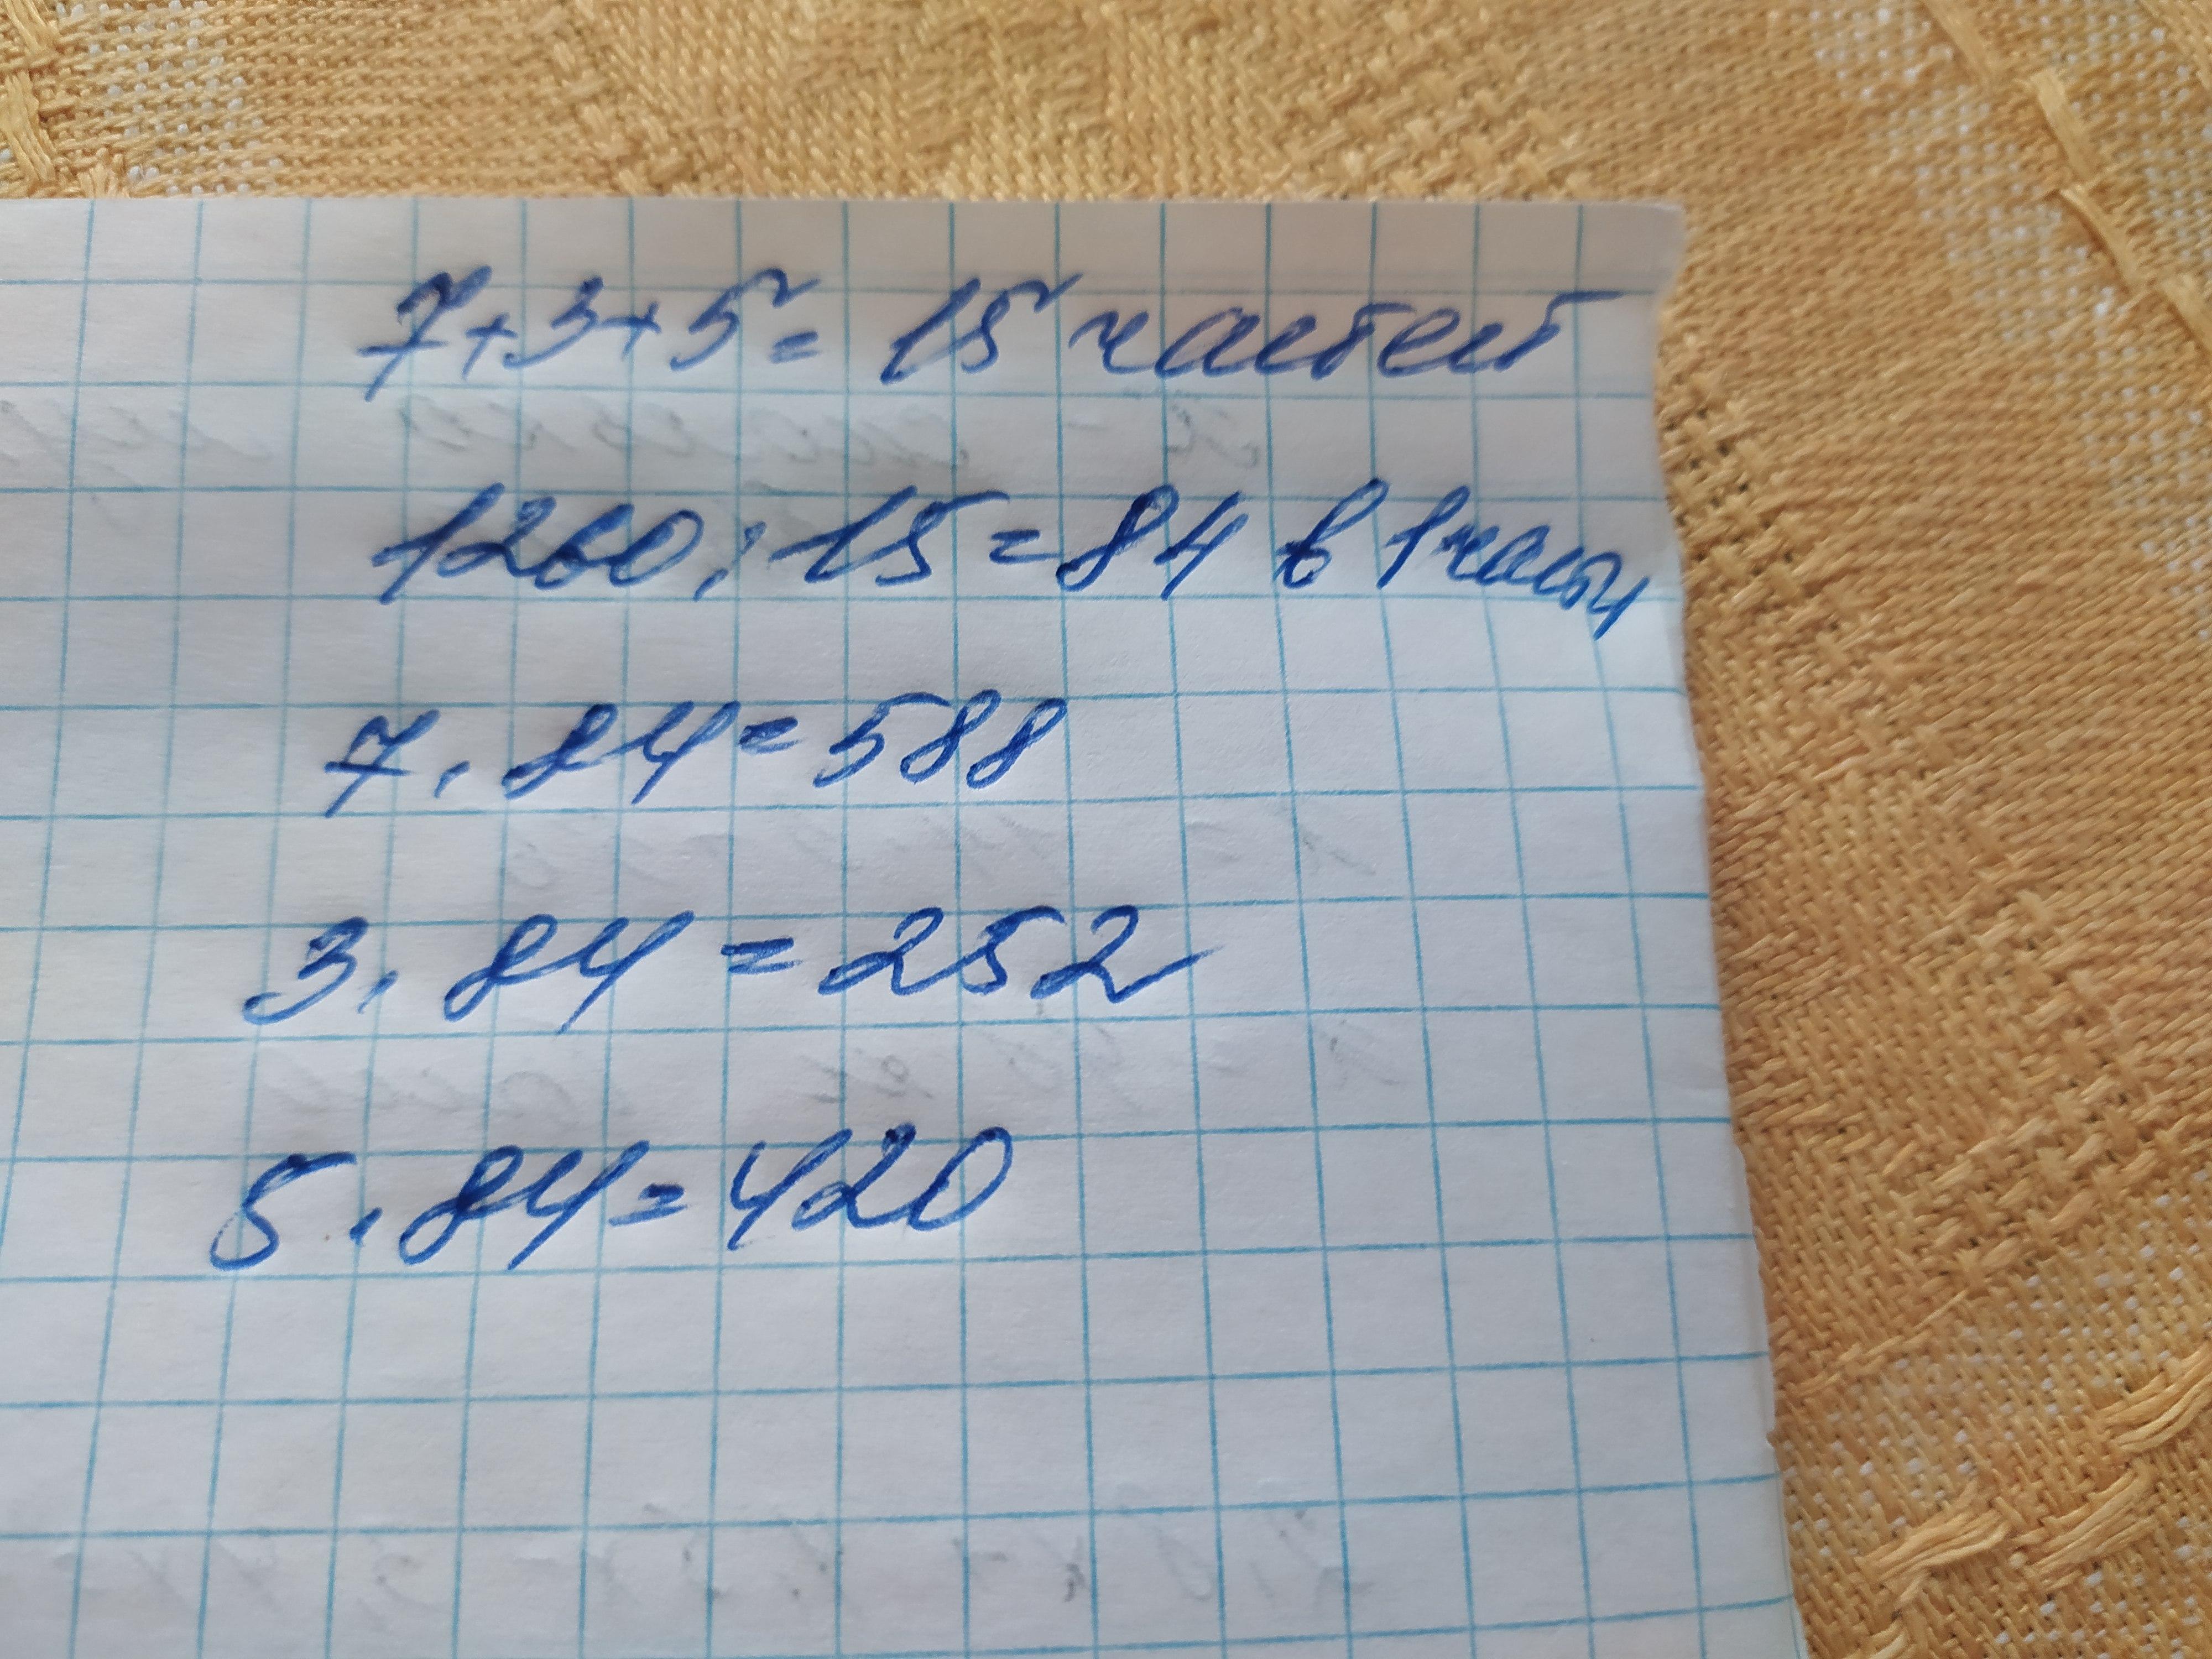 7+3+5=15 частей
1260:15=84 в 1 части
7·84=588
3·84=252
5·84=420